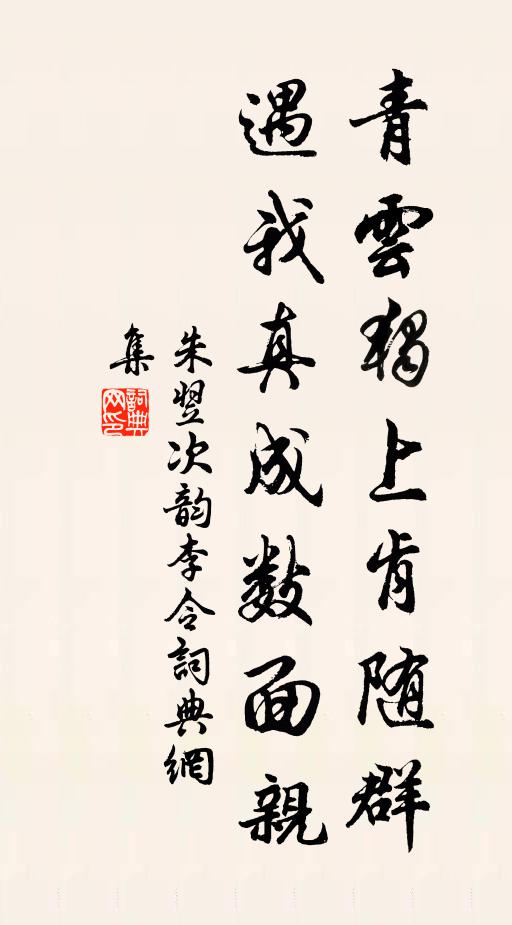 青雲獨上肯随群
遇我真成数面親
朱翌次韵李令詞典網
集
詞典网印